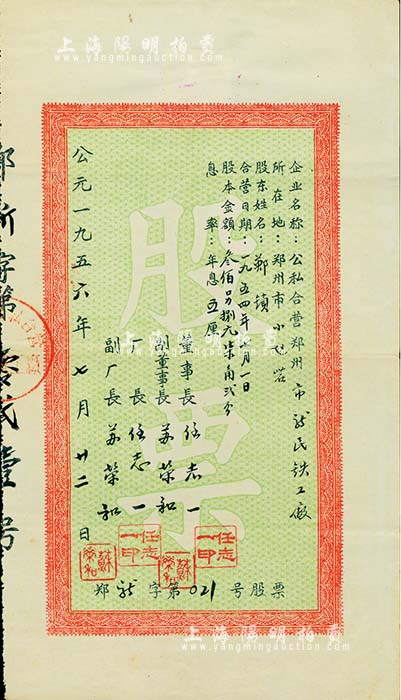 上海陽明拍賣
www.yangmingauction.com
股票
企业名称：公私合营郑州市新民铁工厰
所在地：郑州市
股东姓名：鄭
合营日期：一九五四年 月一日
股本金額：叁佰 捌元柒角弍分
息率：年息五厘
董事長 任志一
副董事長 苏荣和
厂長 任志一
副厂長 苏荣和
公元一九五六年七月廿二日
任志一印
蘇荣和
任志一印
蘇荣和
郑新字第021号股票
鄭新字第 弍壹号
上海陽明拍賣
www.yangmingauction.com